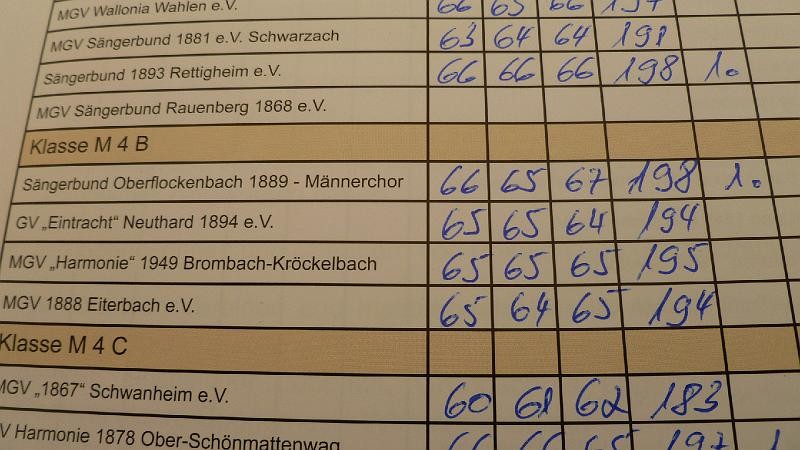 MGV Wallonia Wahlen e.V. 66 65 66 197
MGV Sängerbund 1881 e.V. Schwarzach 63 64 64 191
Sängerbund 1893 Rettigheim e.V. 66 66 66 198 1.
MGV Sängerbund Rauenberg 1868 e.V.
Klasse M 4 B
Sängerbund Oberflockenbach 1889 - Männerchor 66 65 67 198 1.
GV „Eintracht" Neuthard 1894 e.V. 65 65 64 194
MGV „Harmonie" 1949 Brombach-Kröckelbach 65 65 65 195
MGV 1888 Eiterbach e.V. 65 64 65 194
Klasse M 4 C
MGV „1867" Schwanheim e.V. 60 61 62 183
V Harmonie 1878 Ober-Schönmattenwag 66 66 65 197 1